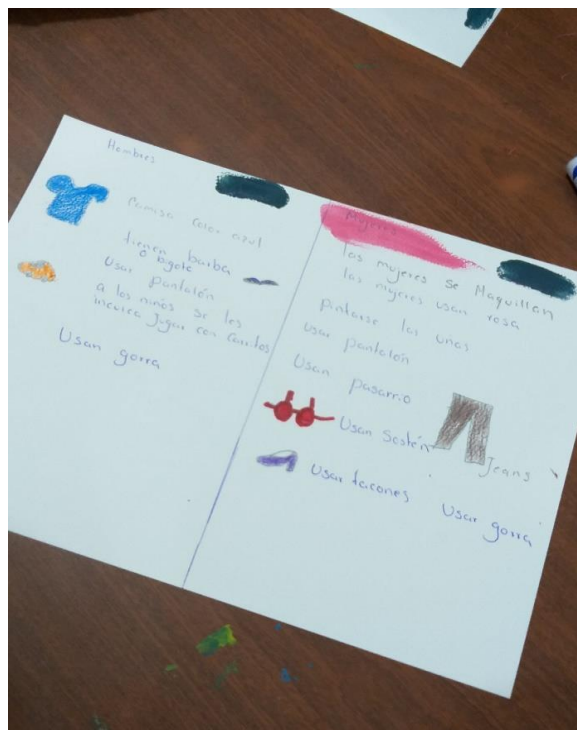 Hombres
Camisa color azul
tienen barba
o bigote
Usar pantalón
a los niños se les
inculca jugar con carritos
Usan gorra
Mujeres
las mujeres se Maquillan
las mujeres usan rosa
pintarse las uñas
usar pantalón
Usan pasarrio
Usan Sostén
Jeans
Usar tacones
Usar gorra